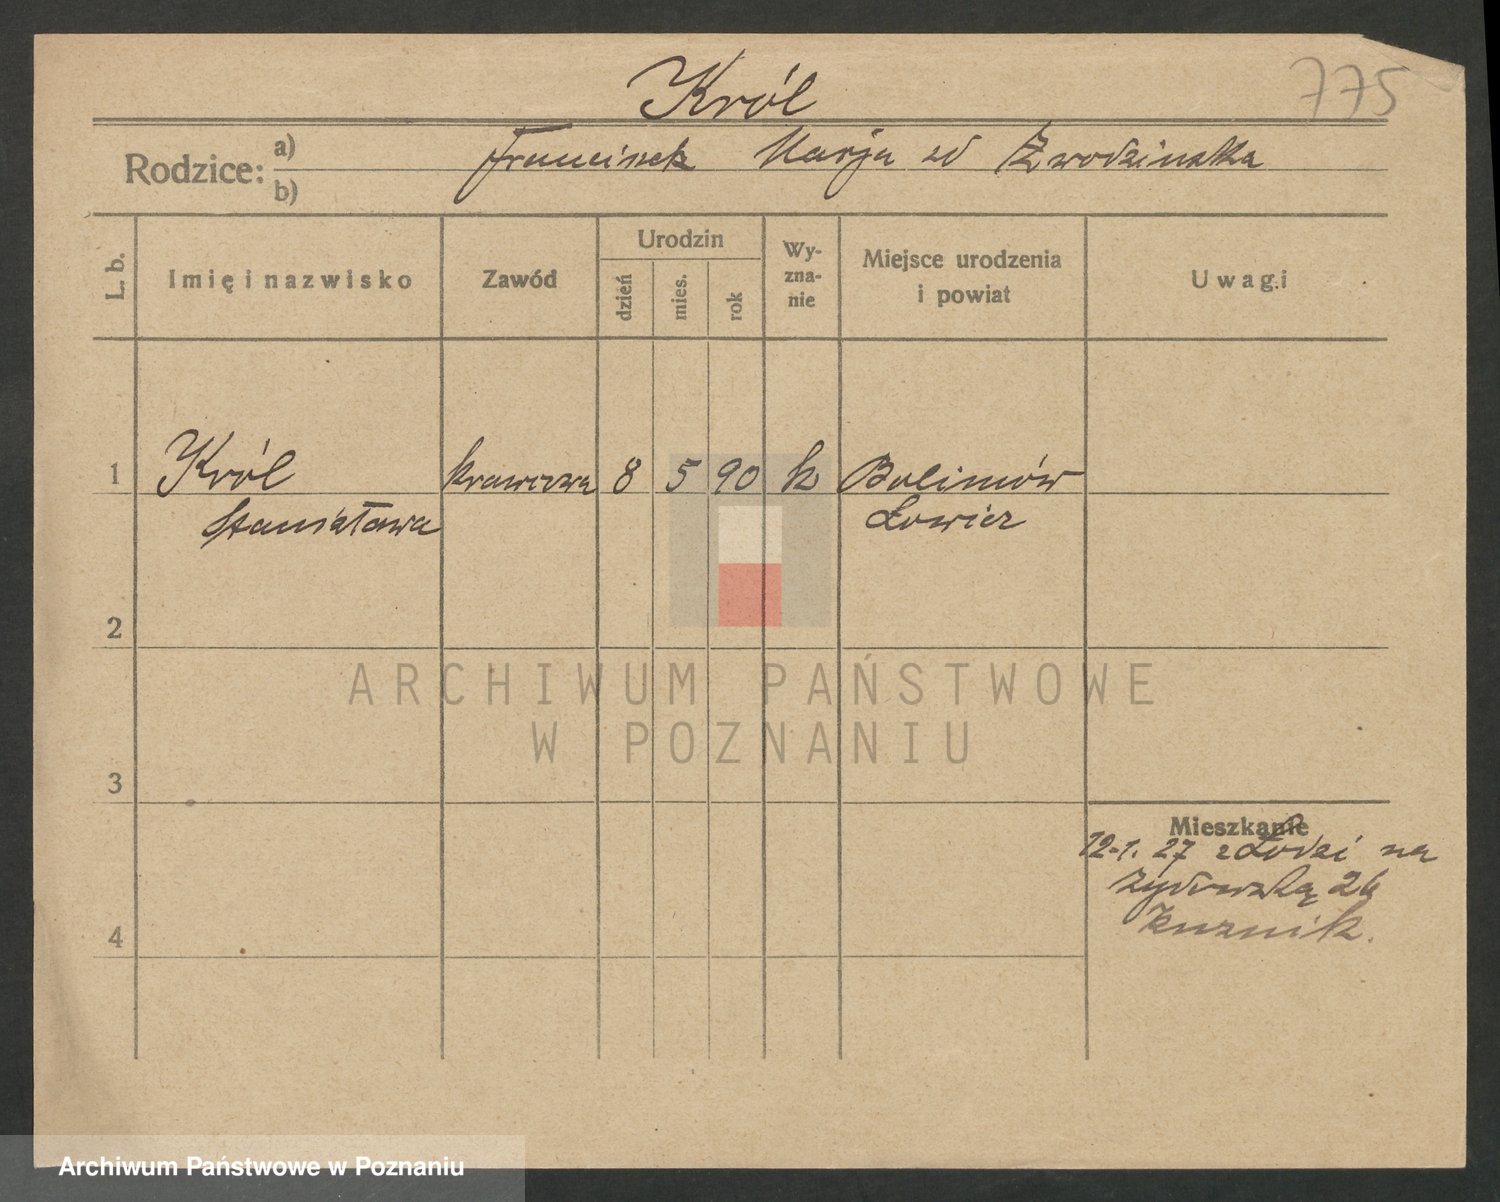 Król
775
Rodzice: a) b)
Franciszek Marja zd Zwodzinska
L. b.
Imię i nazwisko
Zawód
Urodzin
dzień
mies.
rok
Wy-
zna-
nie
Miejsce urodzenia
i powiat
Uwagi
1 Król krawcowa 8 5 90 k Bolimów
Stanisława Łowicz
2
ARCHIWUM PAŃSTWOWE
W POZNANIU
3
Mieszkanie
12-1. 27 z Łodzi na
Żydowską 26
4
Archiwum Państwowe w Poznaniu